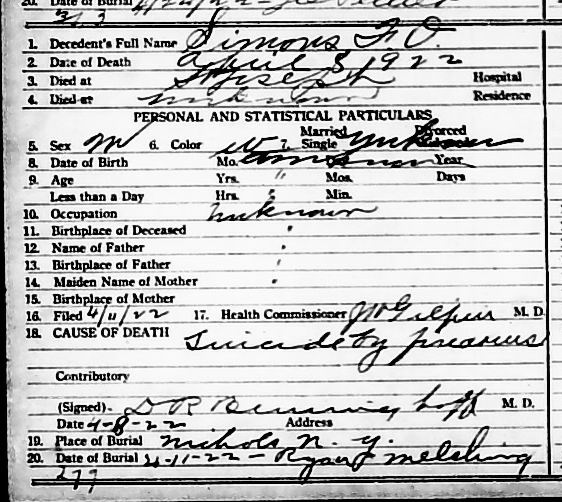 20. Date of Burial 4/24/22 -
3/3
1. Decedent's Full Name Simons F. O.
2. Date of Death April 8, 1922
3. Died at St Joseph Hospital
4. Died at unknown Residence
PERSONAL AND STATISTICAL PARTICULARS
5. Sex M 6. Color W 7. Married Single unknown Divorced
8. Date of Birth Mo. unknown Year
9. Age Yrs. " Mos. Days
Less than a Day Hrs. " Min.
10. Occupation unknown
11. Birthplace of Deceased "
12. Name of Father "
13. Birthplace of Father "
14. Maiden Name of Mother "
15. Birthplace of Mother
16. Filed 4/11/22 17. Health Commissioner M. D.
18. CAUSE OF DEATH Suicide by firearms
Contributory
(Signed). D R M. D.
Date 4-8-22 Address
19. Place of Burial Nichols N. Y.
20. Date of Burial 4-11-22 - Ryan & Melching
277